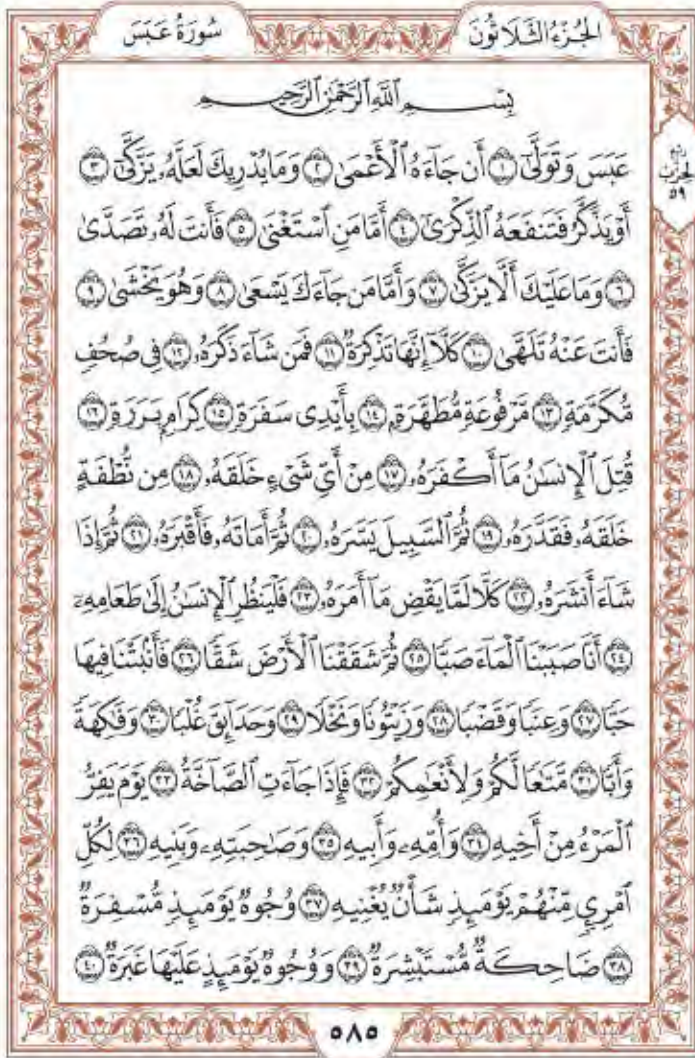 سُورَةُ عَبَسَ
الجُزْءُ الثَّلَاثُونَ
رُبع
الحِزب
٥٩
بِسْمِ ٱللَّهِ ٱلرَّحْمَٰنِ ٱلرَّحِيمِ
عَبَسَ وَتَوَلَّىٰٓ ١ أَن جَآءَهُ ٱلْأَعْمَىٰ ٢ وَمَا يُدْرِيكَ لَعَلَّهُۥ يَزَّكَّىٰٓ ٣
أَوْ يَذَّكَّرُ فَتَنفَعَهُ ٱلذِّكْرَىٰٓ ٤ أَمَّا مَنِ ٱسْتَغْنَىٰ ٥ فَأَنتَ لَهُۥ تَصَدَّىٰ
٦ وَمَا عَلَيْكَ أَلَّا يَزَّكَّىٰ ٧ وَأَمَّا مَن جَآءَكَ يَسْعَىٰ ٨ وَهُوَ يَخْشَىٰ ٩
فَأَنتَ عَنْهُ تَلَهَّىٰ ١٠ كَلَّآ إِنَّهَا تَذْكِرَةٌ ١١ فَمَن شَآءَ ذَكَرَهُۥ ١٢ فِى صُحُفٍ
مُّكَرَّمَةٍ ١٣ مَّرْفُوعَةٍ مُّطَهَّرَةٍۭ ١٤ بِأَيْدِى سَفَرَةٍ ١٥ كِرَامٍۭ بَرَرَةٍ ١٦
قُتِلَ ٱلْإِنسَٰنُ مَآ أَكْفَرَهُۥ ١٧ مِنْ أَىِّ شَىْءٍ خَلَقَهُۥ ١٨ مِن نُّطْفَةٍ
خَلَقَهُۥ فَقَدَّرَهُۥ ١٩ ثُمَّ ٱلسَّبِيلَ يَسَّرَهُۥ ٢٠ ثُمَّ أَمَاتَهُۥ فَأَقْبَرَهُۥ ٢١ ثُمَّ إِذَا
شَآءَ أَنشَرَهُۥ ٢٢ كَلَّا لَمَّا يَقْضِ مَآ أَمَرَهُۥ ٢٣ فَلْيَنظُرِ ٱلْإِنسَٰنُ إِلَىٰ طَعَامِهِۦٓ
٢٤ أَنَّا صَبَبْنَا ٱلْمَآءَ صَبًّا ٢٥ ثُمَّ شَقَقْنَا ٱلْأَرْضَ شَقًّا ٢٦ فَأَنۢبَتْنَا فِيهَا
حَبًّا ٢٧ وَعِنَبًا وَقَضْبًا ٢٨ وَزَيْتُونًا وَنَخْلًا ٢٩ وَحَدَآئِقَ غُلْبًا ٣٠ وَفَٰكِهَةً
وَأَبًّا ٣١ مَّتَٰعًا لَّكُمْ وَلِأَنْعَٰمِكُمْ ٣٢ فَإِذَا جَآءَتِ ٱلصَّآخَّةُ ٣٣ يَوْمَ يَفِرُّ
ٱلْمَرْءُ مِنْ أَخِيهِ ٣٤ وَأُمِّهِۦ وَأَبِيهِ ٣٥ وَصَٰحِبَتِهِۦ وَبَنِيهِ ٣٦ لِكُلِّ
ٱمْرِئٍ مِّنْهُمْ يَوْمَئِذٍ شَأْنٌ يُغْنِيهِ ٣٧ وُجُوهٌ يَوْمَئِذٍ مُّسْفِرَةٌ
٣٨ ضَاحِكَةٌ مُّسْتَبْشِرَةٌ ٣٩ وَوُجُوهٌ يَوْمَئِذٍ عَلَيْهَا غَبَرَةٌ ٤٠
٥٨٥